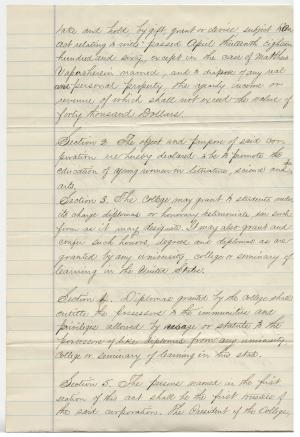 take and hold by gift, grant or devise subject to an
act relating to wills passed April thirteenth eighteen
hundred and sixty, except in the case of Matthew
Vapor therein named, and to dispose of any real
and personal property, the yearly income or
revenue of which shall not exceed the value of
forty thousand Dollars.
Section 2. The object and purpose of said cor-
poration are hereby declared to be to promote the
education of young women in literature, science and the
arts.
Section 3. The College may grant to students under
its charge diplomas or honorary testimonials in such
form as it may designate. It may also grant and
confer such honors, degrees and diplomas as are
granted by any University, college or seminary of
learning in the United States.
Section 4. Diplomas granted by the College shall
entitle the possessors to the immunities and
privileges allowed by usage or statute to the
possessors of like diplomas from any university
college or seminary of learning in this state.
Section 5. The persons named in the first
section of this act shall be the first trustees of
the said corporation. The President of the College,